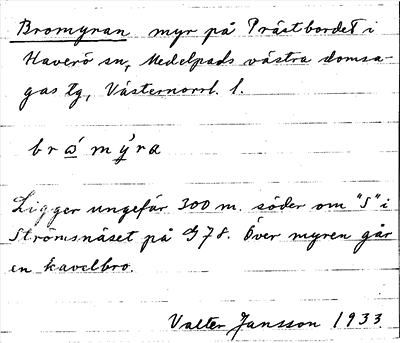 Bromyran myr på Prästbordet i
Haverö sn, Medelpads västra domsa-
gas tg, Västernorrl. l.
brὼmýra
Ligger ungefär 300 m. söder om "S" i
Strömsnäset på G78. Över myren går
en kavelbro.
Valter Jansson 1933.